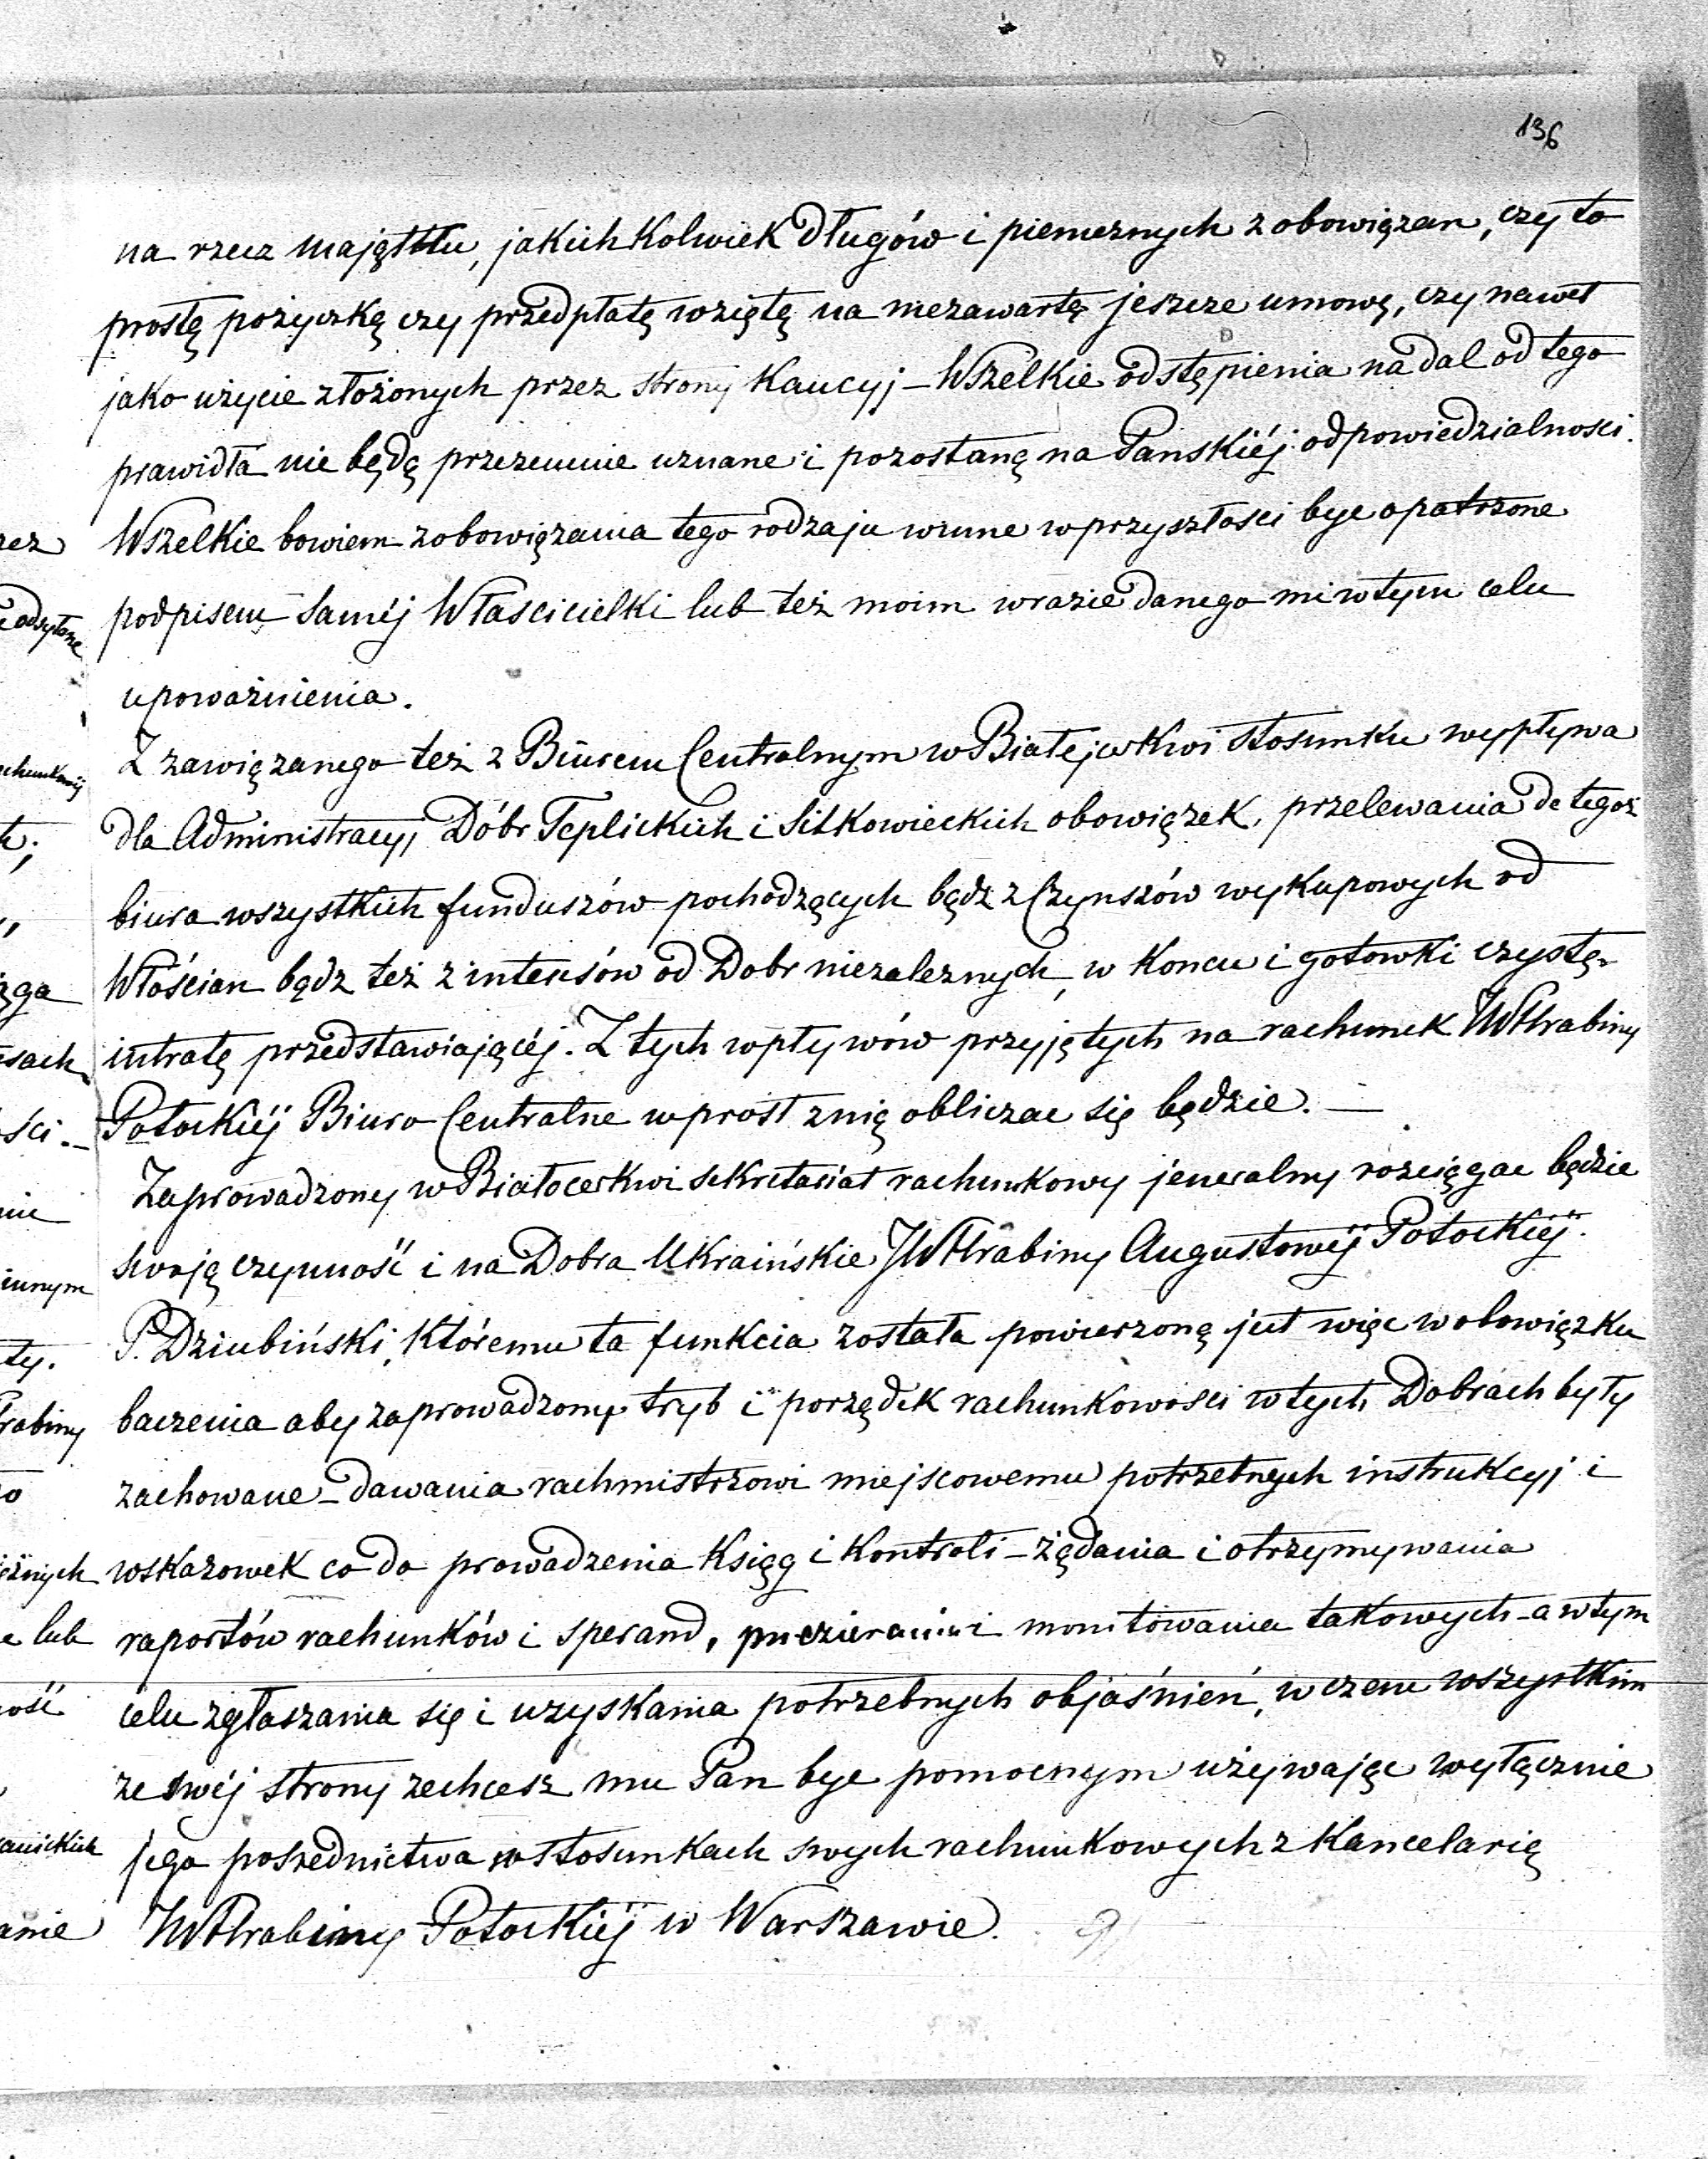 136
na rzecz majątku, jakich kolwiek Długów i pieniężnych zobowiązan, czy to
prostą pożyczką czy przedpłatą wziętą na niezawartą jeszcze umowę, czy nawet
jako użycie złożonych przez strony Kaucyj – Wszelkie odstępienia nadal od tego
prawidła nie będą przezemnie uznane i pozostaną na Panskiéj odpowiedzialnosci.
Wszelkie bowiem zobowiązania tego rodzaju winne w przyszłosci byc opatrzone
podpisem saméj Włascicielki lub też moim w razie danego mi w tym celu
upoważnienia.
Z zawiązanego też z Biurem Centralnym w Białejcerkwi stosunku wypływa
dla Administracyi Dóbr Teplickich i Sitkowieckich obowiązek, przelewania do tegoż
biura wszystkich funduszów pochodzących bądz z Czynszów wykupowych od
Włościan bądz też z interesów od Dobr niezaleznych, w koncu i gotowki czystą
intratę przedstawiającéj. Z tych wpływów przyjętych na rachunek JWHrabiny
Potockiéj Biuro Centralne wprost z nią obliczac się będzie. —
Zaprowadzony w Białocerkwi sekretariat rachunkowy jeneralny rozciągac będzie
swoją czynność i na Dobra Ukraińskie JWHrabiny Augustowéj Potockiéj.
P. Dziubiński, któremu ta funkcia została powierzoną jest więc w obowiązku
baczenia aby zaprowadzony tryb i porządek rachunkowosci w tych Dobrach były
zachowane – dawania rachmistrzowi miejscowemu potrzebnych instrukcyj i
wskazowek co do prowadzenia Ksiąg i Kontroli – żądania i otrzymywania
raportów rachunków i sperand, i monitowania takowych – a w tym
celu zgłaszania się i uzyskania potrzebnych objaśnień, w czem wszystkim
ze swéj strony zechcesz mu Pan byc pomocnym używając wyłącznie
jego posrednictwa w stosunkach swych rachunkowych z Kancelarią
JWHrabiny Potockiéj w Warszawie.